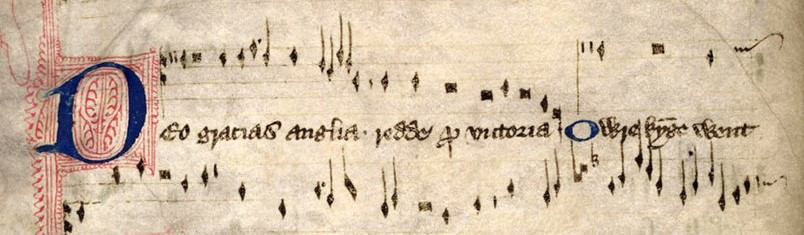 Deo gracias anglia · redde ꝓ victoria Owre kyge went